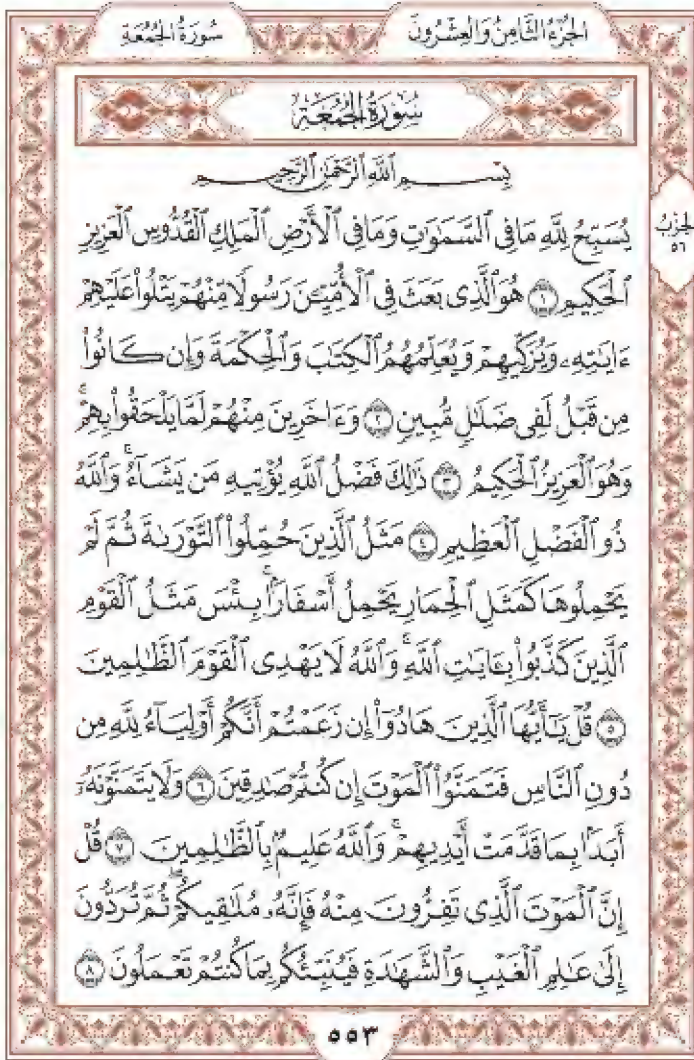 الجُزْءُ الثَّامِنُ وَالعِشْرُونَ
سُورَةُ الجُمُعَةِ
سُورَةُ الجُمُعَةِ
بِسْمِ ٱللَّهِ ٱلرَّحْمَٰنِ ٱلرَّحِيمِ
الحِزْبُ
٥٦
يُسَبِّحُ لِلَّهِ مَا فِى ٱلسَّمَٰوَٰتِ وَمَا فِى ٱلْأَرْضِ ٱلْمَلِكِ ٱلْقُدُّوسِ ٱلْعَزِيزِ
ٱلْحَكِيمِ ١ هُوَ ٱلَّذِى بَعَثَ فِى ٱلْأُمِّيِّـۧنَ رَسُولًا مِّنْهُمْ يَتْلُوا۟ عَلَيْهِمْ
ءَايَٰتِهِۦ وَيُزَكِّيهِمْ وَيُعَلِّمُهُمُ ٱلْكِتَٰبَ وَٱلْحِكْمَةَ وَإِن كَانُوا۟
مِن قَبْلُ لَفِى ضَلَٰلٍ مُّبِينٍ ٢ وَءَاخَرِينَ مِنْهُمْ لَمَّا يَلْحَقُوا۟ بِهِمْ ۚ
وَهُوَ ٱلْعَزِيزُ ٱلْحَكِيمُ ٣ ذَٰلِكَ فَضْلُ ٱللَّهِ يُؤْتِيهِ مَن يَشَآءُ ۚ وَٱللَّهُ
ذُو ٱلْفَضْلِ ٱلْعَظِيمِ ٤ مَثَلُ ٱلَّذِينَ حُمِّلُوا۟ ٱلتَّوْرَىٰةَ ثُمَّ لَمْ
يَحْمِلُوهَا كَمَثَلِ ٱلْحِمَارِ يَحْمِلُ أَسْفَارًۢا ۚ بِئْسَ مَثَلُ ٱلْقَوْمِ
ٱلَّذِينَ كَذَّبُوا۟ بِـَٔايَٰتِ ٱللَّهِ ۚ وَٱللَّهُ لَا يَهْدِى ٱلْقَوْمَ ٱلظَّٰلِمِينَ
٥ قُلْ يَٰٓأَيُّهَا ٱلَّذِينَ هَادُوٓا۟ إِن زَعَمْتُمْ أَنَّكُمْ أَوْلِيَآءُ لِلَّهِ مِن
دُونِ ٱلنَّاسِ فَتَمَنَّوُا۟ ٱلْمَوْتَ إِن كُنتُمْ صَٰدِقِينَ ٦ وَلَا يَتَمَنَّوْنَهُۥٓ
أَبَدًۢا بِمَا قَدَّمَتْ أَيْدِيهِمْ ۚ وَٱللَّهُ عَلِيمٌۢ بِٱلظَّٰلِمِينَ ٧ قُلْ
إِنَّ ٱلْمَوْتَ ٱلَّذِى تَفِرُّونَ مِنْهُ فَإِنَّهُۥ مُلَٰقِيكُمْ ۖ ثُمَّ تُرَدُّونَ
إِلَىٰ عَٰلِمِ ٱلْغَيْبِ وَٱلشَّهَٰدَةِ فَيُنَبِّئُكُم بِمَا كُنتُمْ تَعْمَلُونَ ٨
٥٥٣